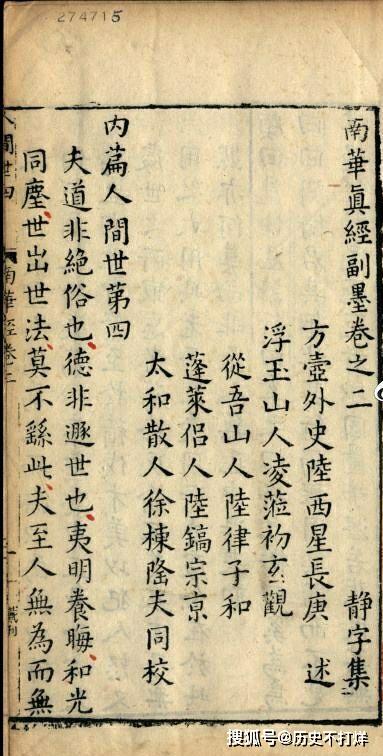 274715
南華眞經副墨卷之二 靜字集
方壺外史陸西星長庚 述
浮玉山人凌蒞初玄觀
從吾山人陸律子和
蓬萊侶人陸鎬宗京
太和散人徐棟隆夫同校
內篇人間世第四
夫道非絕俗也德非遯世也夷明養晦和光
同塵世出世法莫不繇此夫至人無為而無
人間世四 南華經卷二
搜狐号@历史不打烊